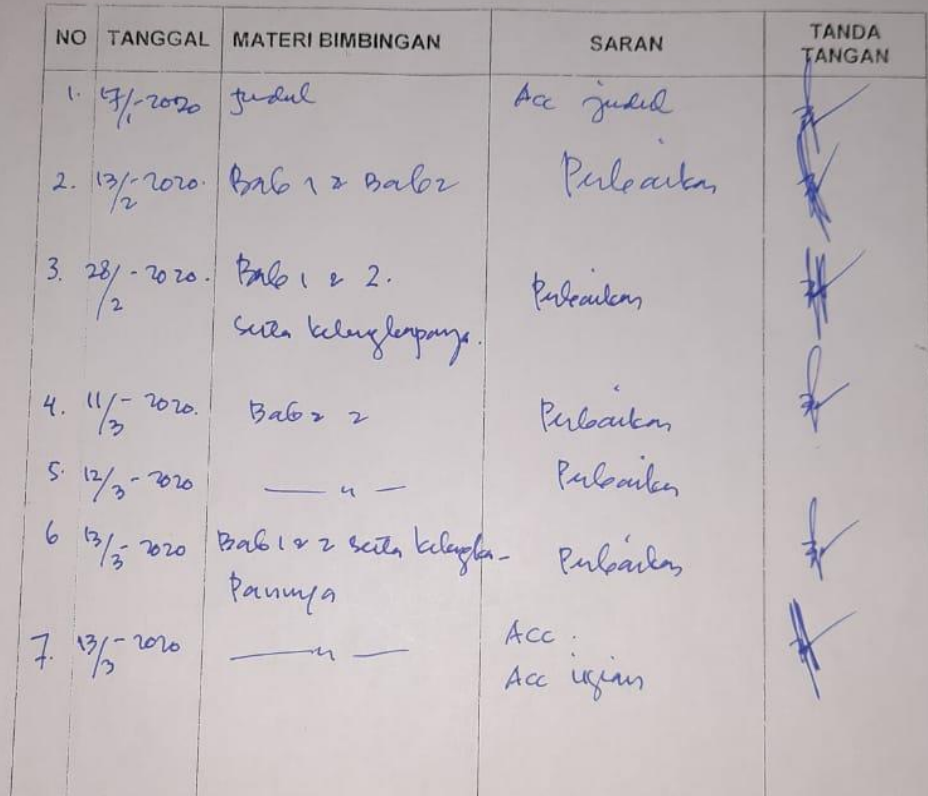 NO TANGGAL MATERI BIMBINGAN SARAN TANDA TANGAN
1. 17/1-2020 judul Acc judul
2. 13/2-2020. Bab 1 & Bab 2 Perbaikan
3. 28/2-2020. Bab 1 & 2. Perbaikan
serta kelengkapanya.
4. 11/3-2020. Bab 2 Perbaikan
5. 12/3-2020 — " — Perbaikan
6 13/3-2020 Bab 1 & 2 serta kelengka- Perbaikan
pannya
7. 13/3-2020 — " — Acc.
Acc ujian